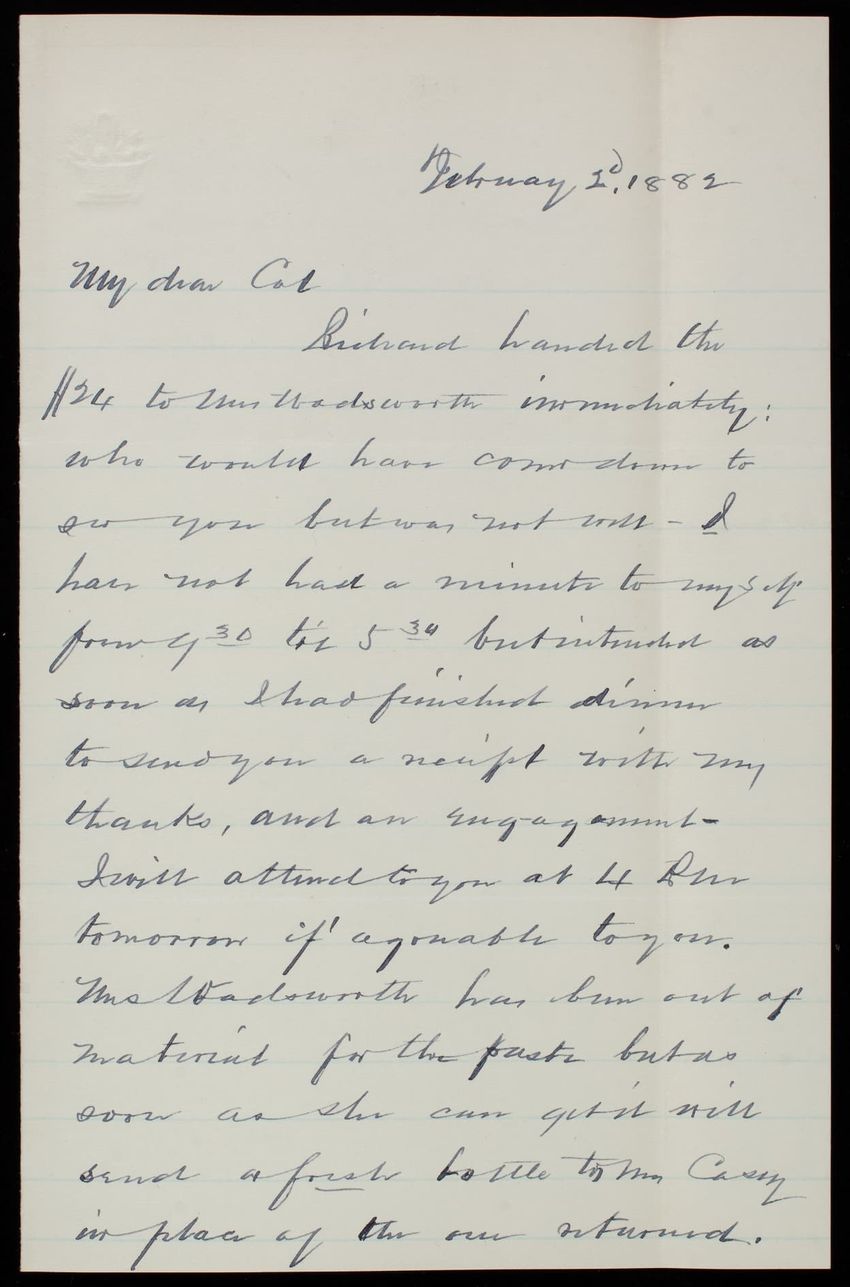 February 2d, 1882
My dear Col
Richard handed the
$24 to Mrs Wadsworth immediately:
who would have come down to
see you but was not well - I
have not had a minute to myself
from 9 30 til 5 30 but intended as
soon as I had finished dinner
to send you a receipt with my
thanks, and an engagement -
I will attend to you at 4 P.M.
tomorrow if agreeable to you.
Mrs Wadsworth has been out of
material for the paste but as
soon as she can get it will
send a fresh bottle to Mrs Casey
in place of the one returned.